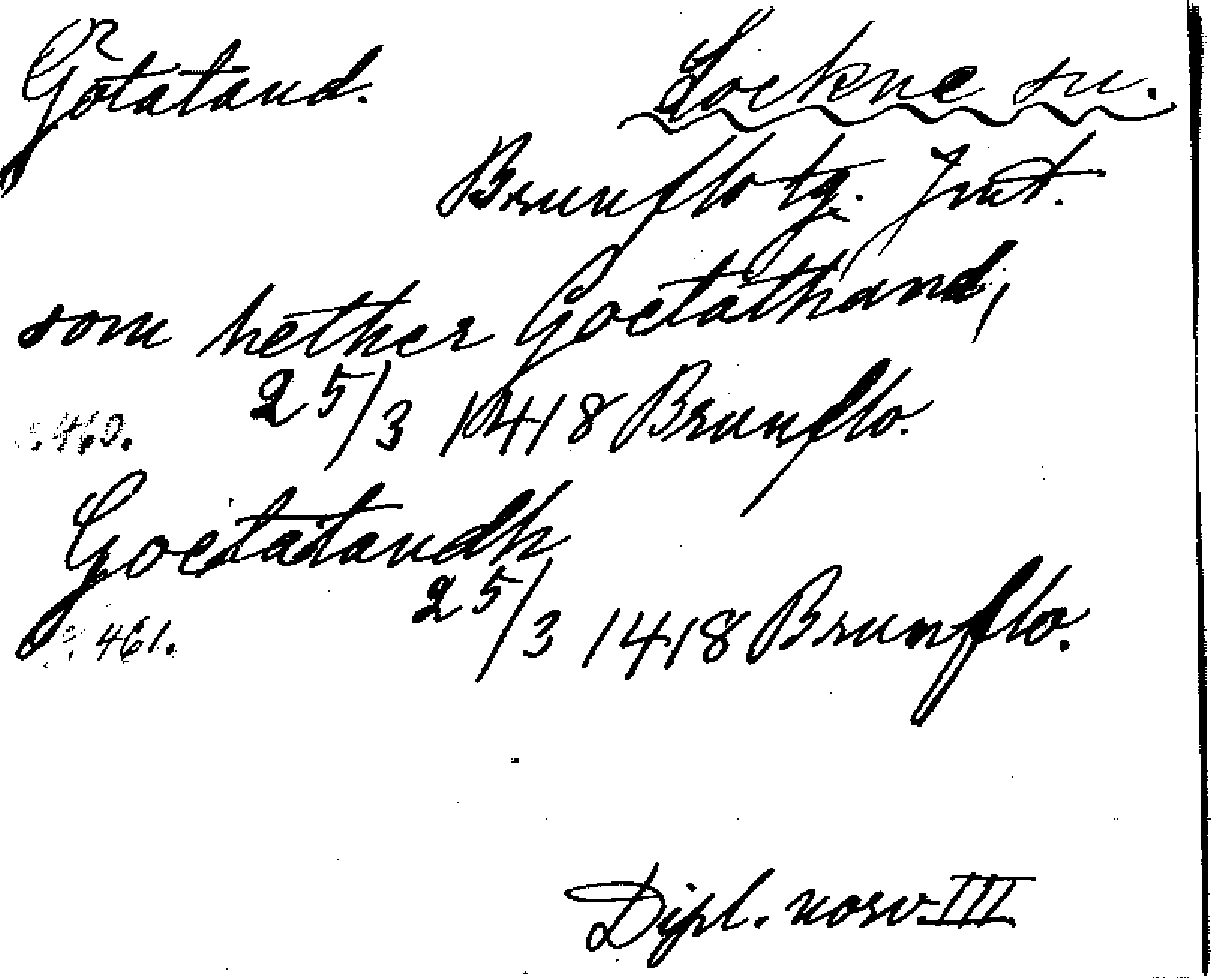 Götatand. Lockne sn.
Brunflo tg. Jmt.
som hether Goetathand,
s. 460. 25/3 1418 Brunflo.
Goetatandh
s. 461. 25/3 1418 Brunflo.
Dipl. norv. III